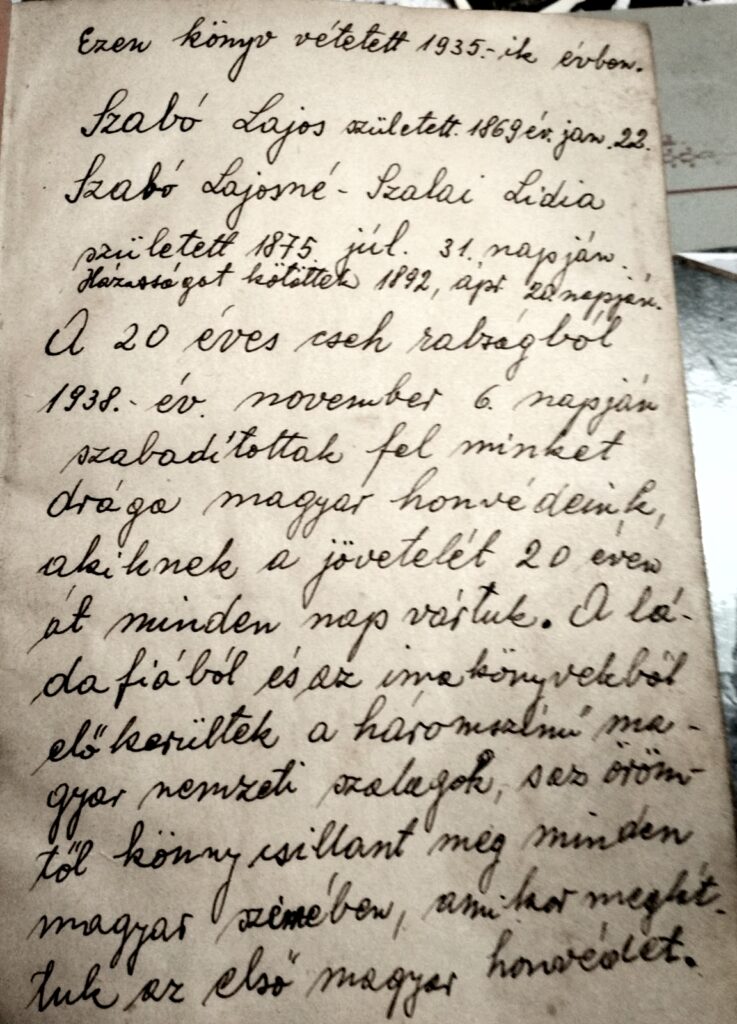 Ezen könyv vétetett 1935.-ik évben.
Szabó Lajos született. 1869 év. jan. 22.
Szabó Lajosné - Szalai Lidia
született 1875. júl. 31. napján.
Házasságot kötöttek 1892, ápr 20 napján.
A 20 éves cseh rabságból
1938.- év. november 6. napján
szabadítottak fel minket
drága magyar honvédeink,
akiknek a jövetelét 20 éven
át minden nap vártuk. A lá-
dafiából és az imakönyvekből
előkerültek a háromszínű ma-
gyar nemzeti szalagok, s az öröm-
től könny csillant meg minden
magyar szemében, amikor meglát-
tuk az első magyar honvédet.